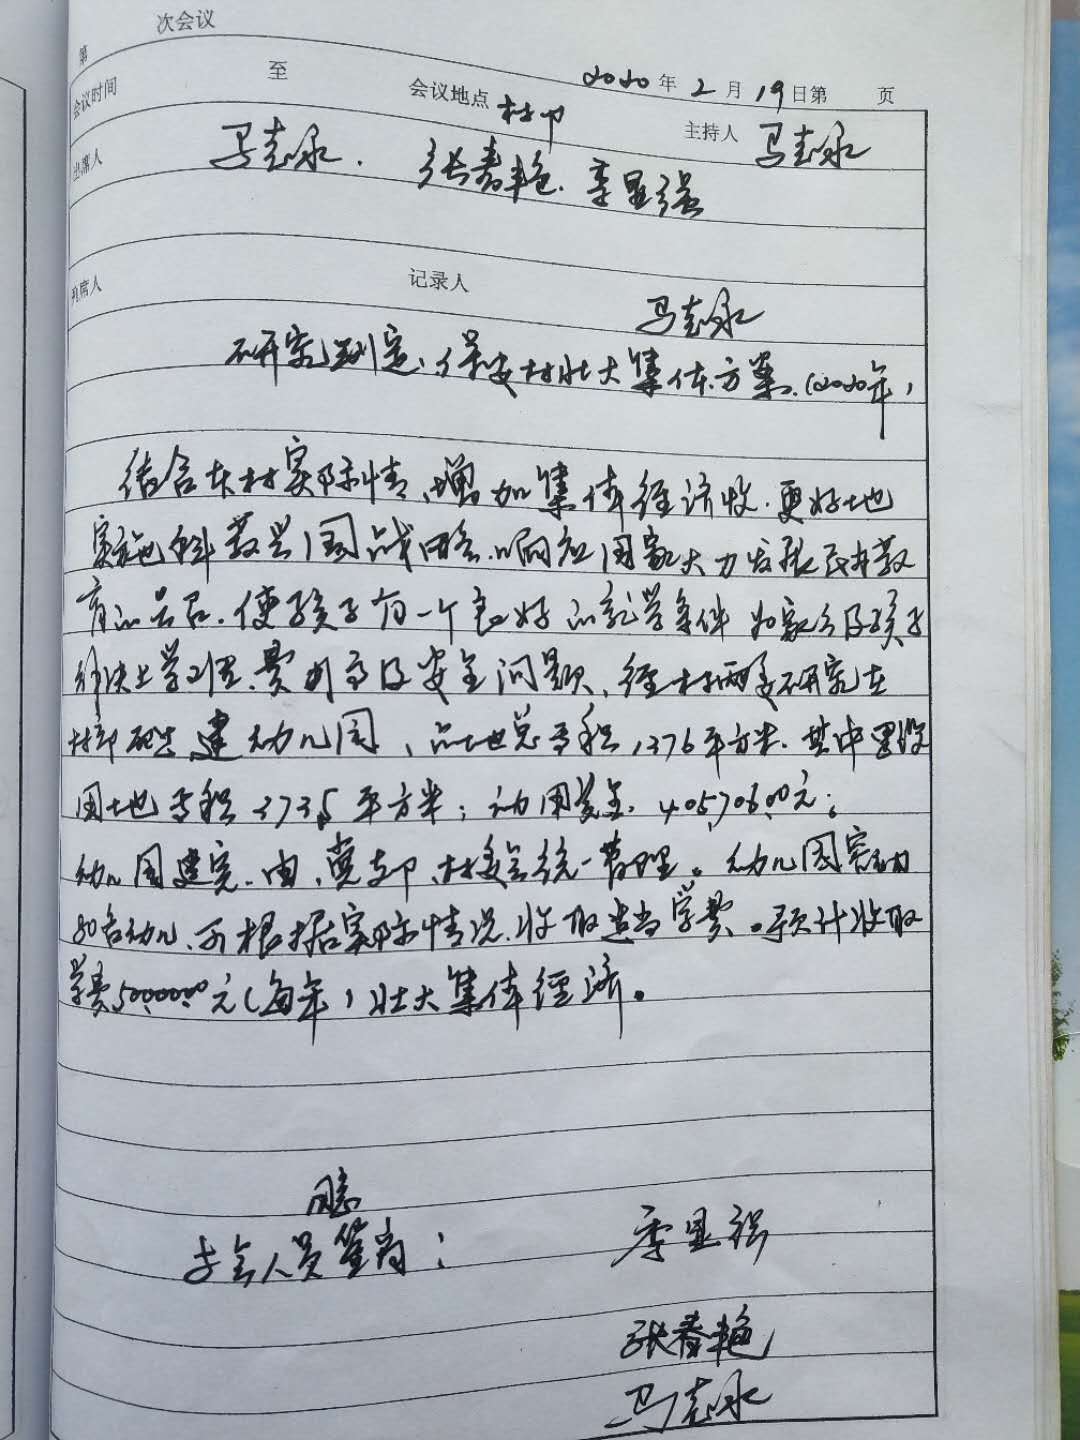 第 次会议
会议时间 至 会议地点 村部 2020年2月19日第 页
出席人 马志永. 张春艳. 季显强 主持人 马志永
列席人 记录人 马志永
研究制定、保安村壮大集体方案.(2020年)
结合本村实际情,增加集体经济收.更好地
实施科教兴国战略.响应国家大力发展民办教
育的号召.使孩子有一个良好的就学条件 为家长及孩子
解决上学 费用高及安全问题、经村两委研究在
村部 建幼儿园、占地总面积1376平方米.其中
用地面积373.5平方米;动用资金.405,706.00元;
幼儿园建完.由、党支部、村委会统一管理。幼儿园容纳
80名幼儿、可根据实际情况.收取适当学费。预计收取
学费50,000.00元(每年)壮大集体经济。
同意
与会人员签尚: 季显强
张春艳
马志永